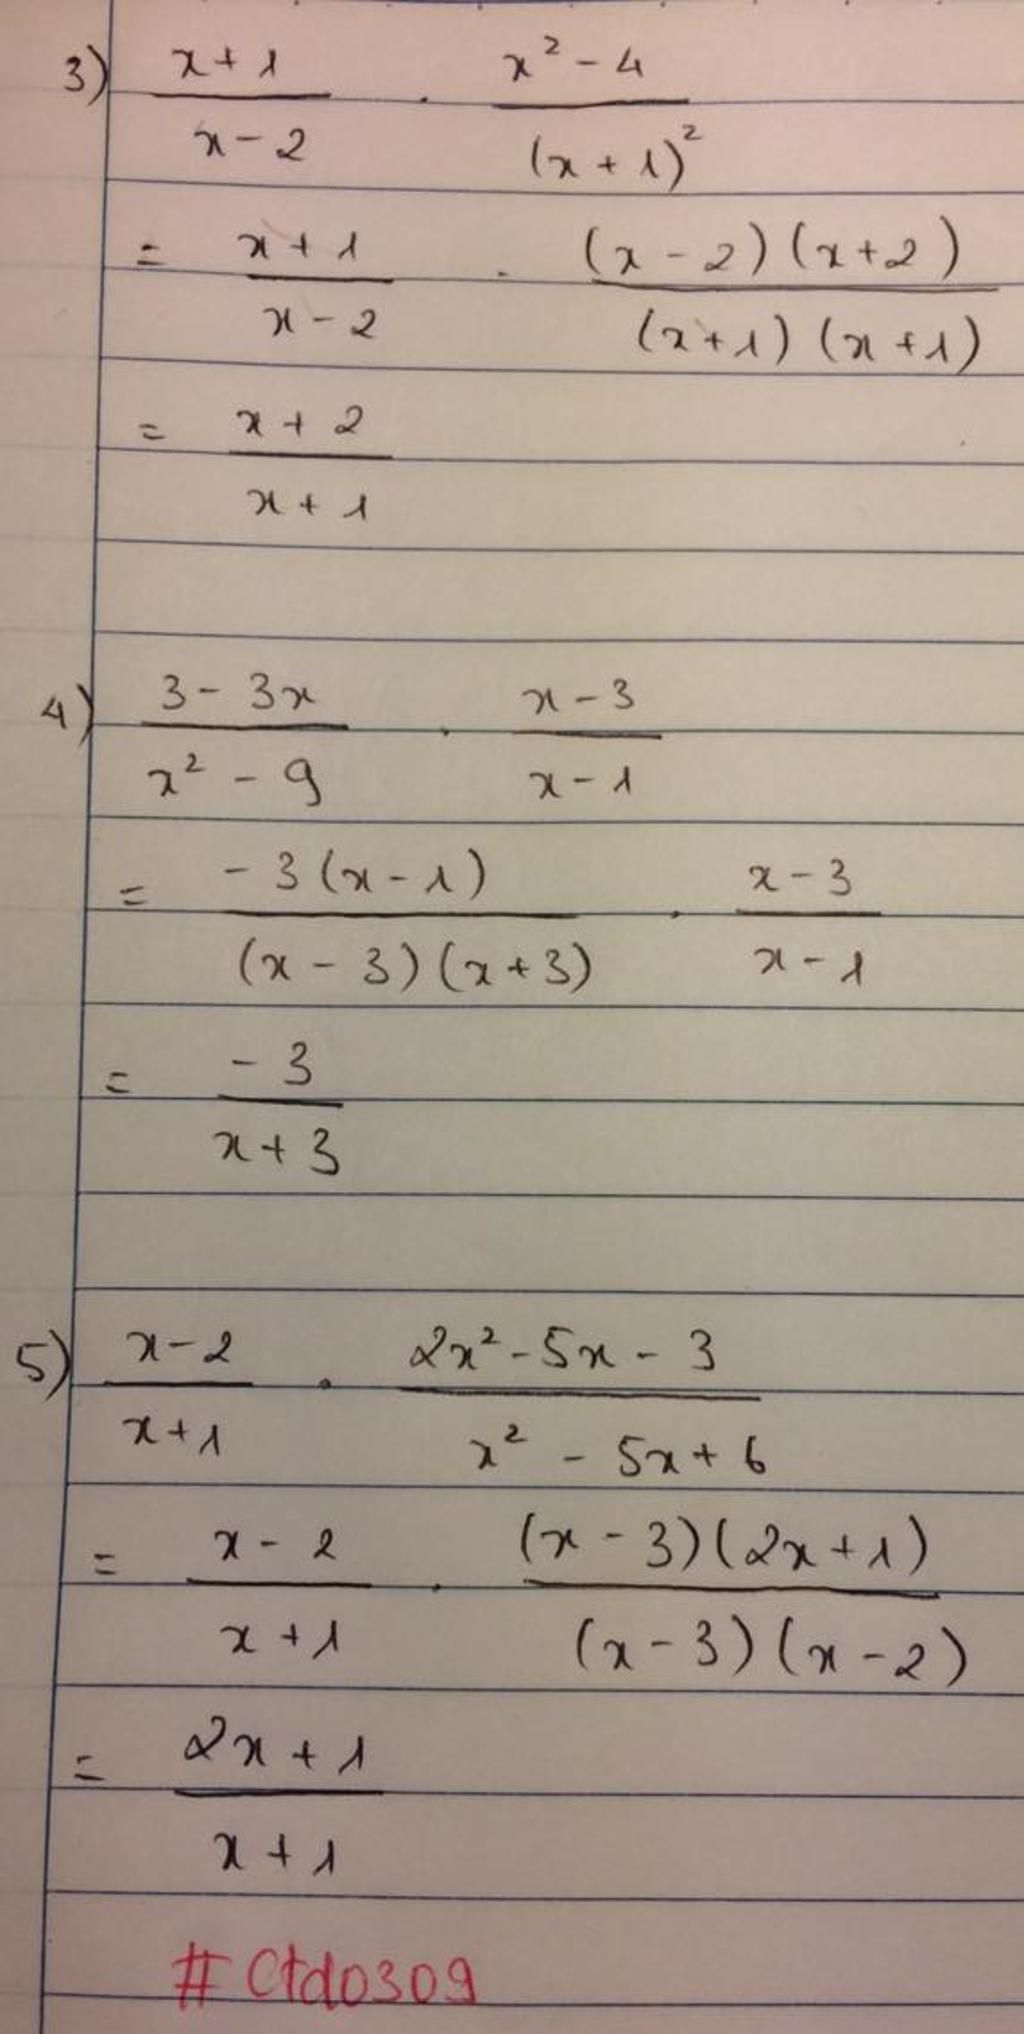 3) x+1 / x-2 . x² - 4 / (x+1)²
= x+1 / x-2 . (x-2)(x+2) / (x+1)(x+1)
= x+2 / x+1
4) 3-3x / x² - 9 . x-3 / x-1
= -3(x-1) / (x-3)(x+3) . x-3 / x-1
= -3 / x+3
5) x-2 / x+1 . 2x²-5x-3 / x² - 5x+6
= x-2 / x+1 . (x-3)(2x+1) / (x-3)(x-2)
= 2x+1 / x+1
#Ctd0309